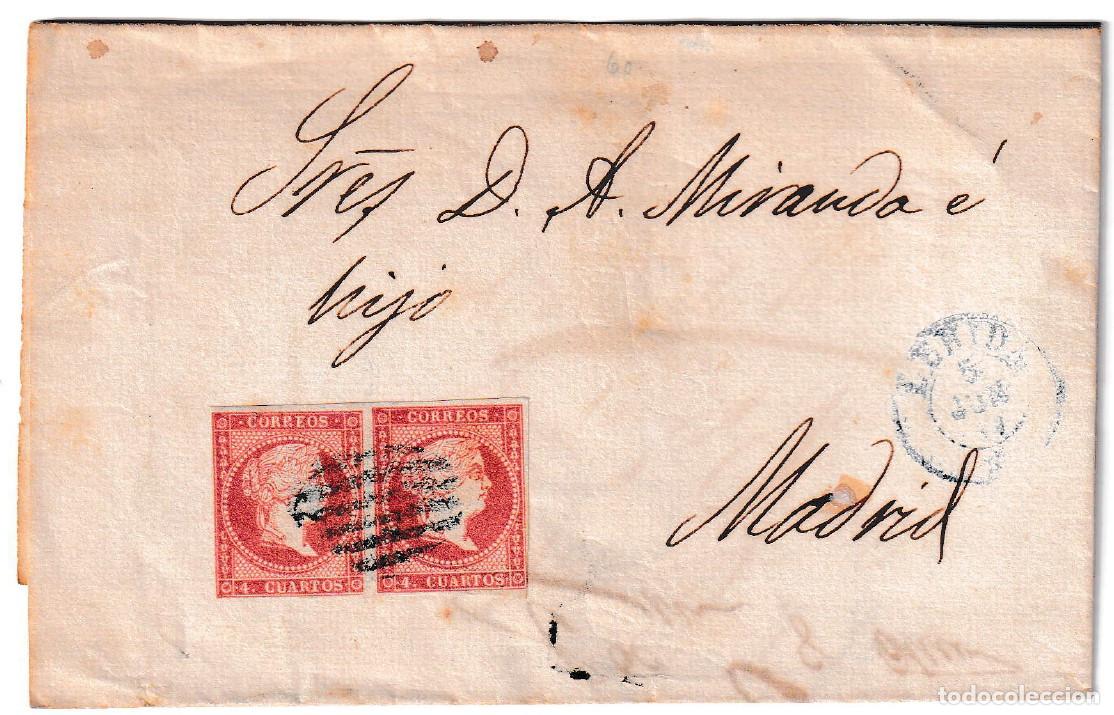 60
Sres D. A. Miranda é
hijo
LERIDA
5
CORREOS CORREOS
Madrid
4. CUARTOS 4. CUARTOS
todocoleccion